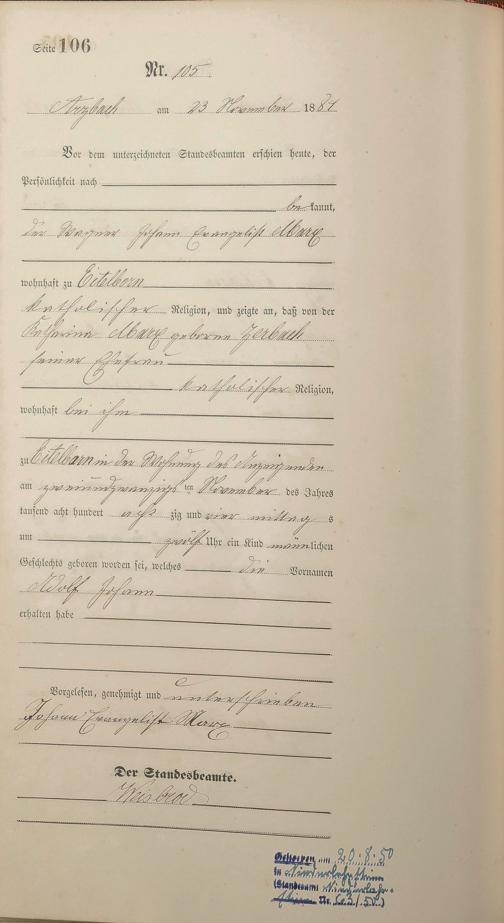 Seite 106
Nr. 105.
Arzbach am 23 November 1884
Vor dem unterzeichneten Standesbeamten erschien heute, der
Persönlichkeit nach
be kannt,
der Wagner Johann Evangelist Marx
wohnhaft zu Eitelborn
katholischer Religion, und zeigte an, daß von der
Katharina Marx geborne Zerbach
seiner Ehefrau
katholischer Religion,
wohnhaft bei ihm
zu Eitelborn in der Wohnung des Anzeigenden
am zweiundzwanzigs ten November des Jahres
tausend acht hundert acht zig und vier mittag s
um zwölf Uhr ein Kind männlichen
Geschlechts geboren worden sei, welches die Vornamen
Adolf Johann
erhalten habe
Vorgelesen, genehmigt und unterschrieben
Johann Evangelist Marx
Der Standesbeamte.
Weisbrod
Gestorben am 20.8.50
in Niederlahnstein
(Standesamt Niederlahn-
stein Nr.